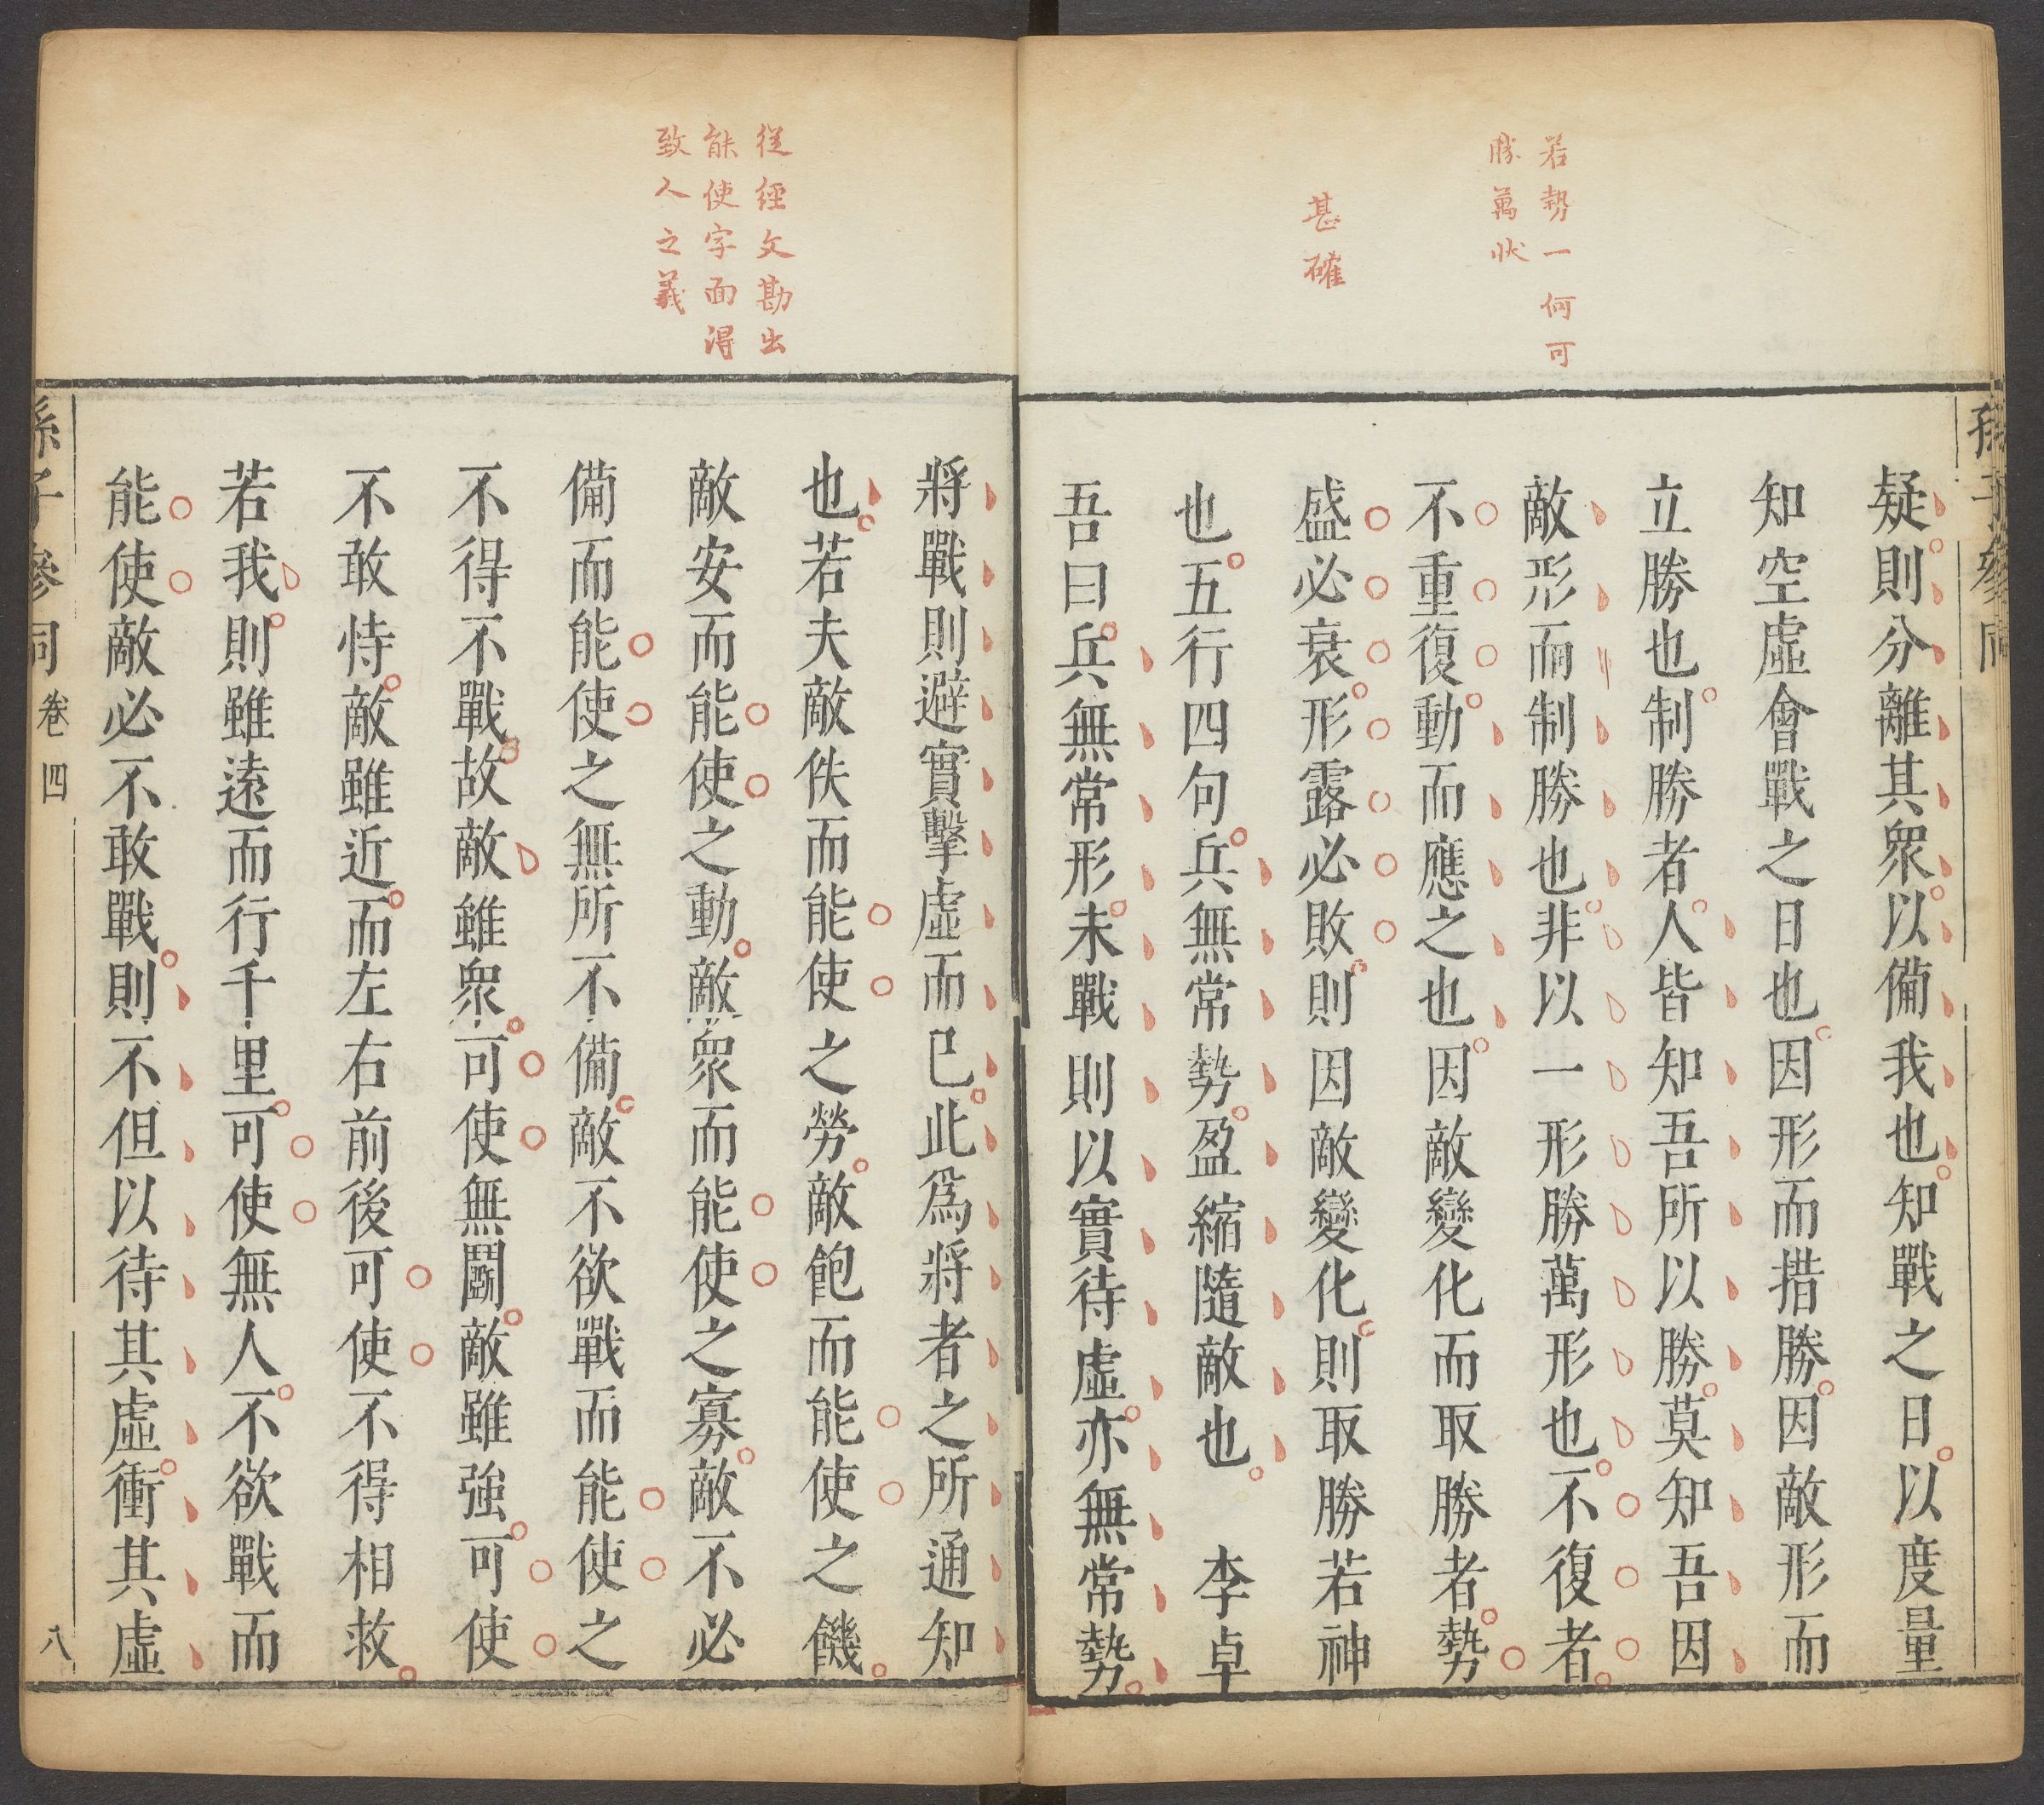 孫子參同
若勢一何可
勝萬狀
甚確
疑則分離其衆以備我也知戰之日以度量
知空虛會戰之日也因形而措勝因敵形而
立勝也制勝者人皆知吾所以勝莫知吾因
敵形而制勝也非以一形勝萬形也不復者
不重復動而應之也因敵變化而取勝者勢
盛必衰形露必敗則因敵變化則取勝若神
也五行四句兵無常勢盈縮隨敵也 李卓
吾曰兵無常形未戰則以實待虛亦無常勢
從經文勘出
能使字面得
致人之義
將戰則避實擊虛而已此爲將者之所通知
也若夫敵佚而能使之勞敵飽而能使之饑
敵安而能使之動敵衆而能使之寡敵不必
備而能使之無所不備敵不欲戰而能使之
不得不戰故敵雖衆可使無鬭敵雖強可使
不敢恃敵雖近而左右前後可使不得相救
若我則雖遠而行千里可使無人不欲戰而
能使敵必不敢戰則不但以待其虛衝其虛
孫子參同 卷四 八